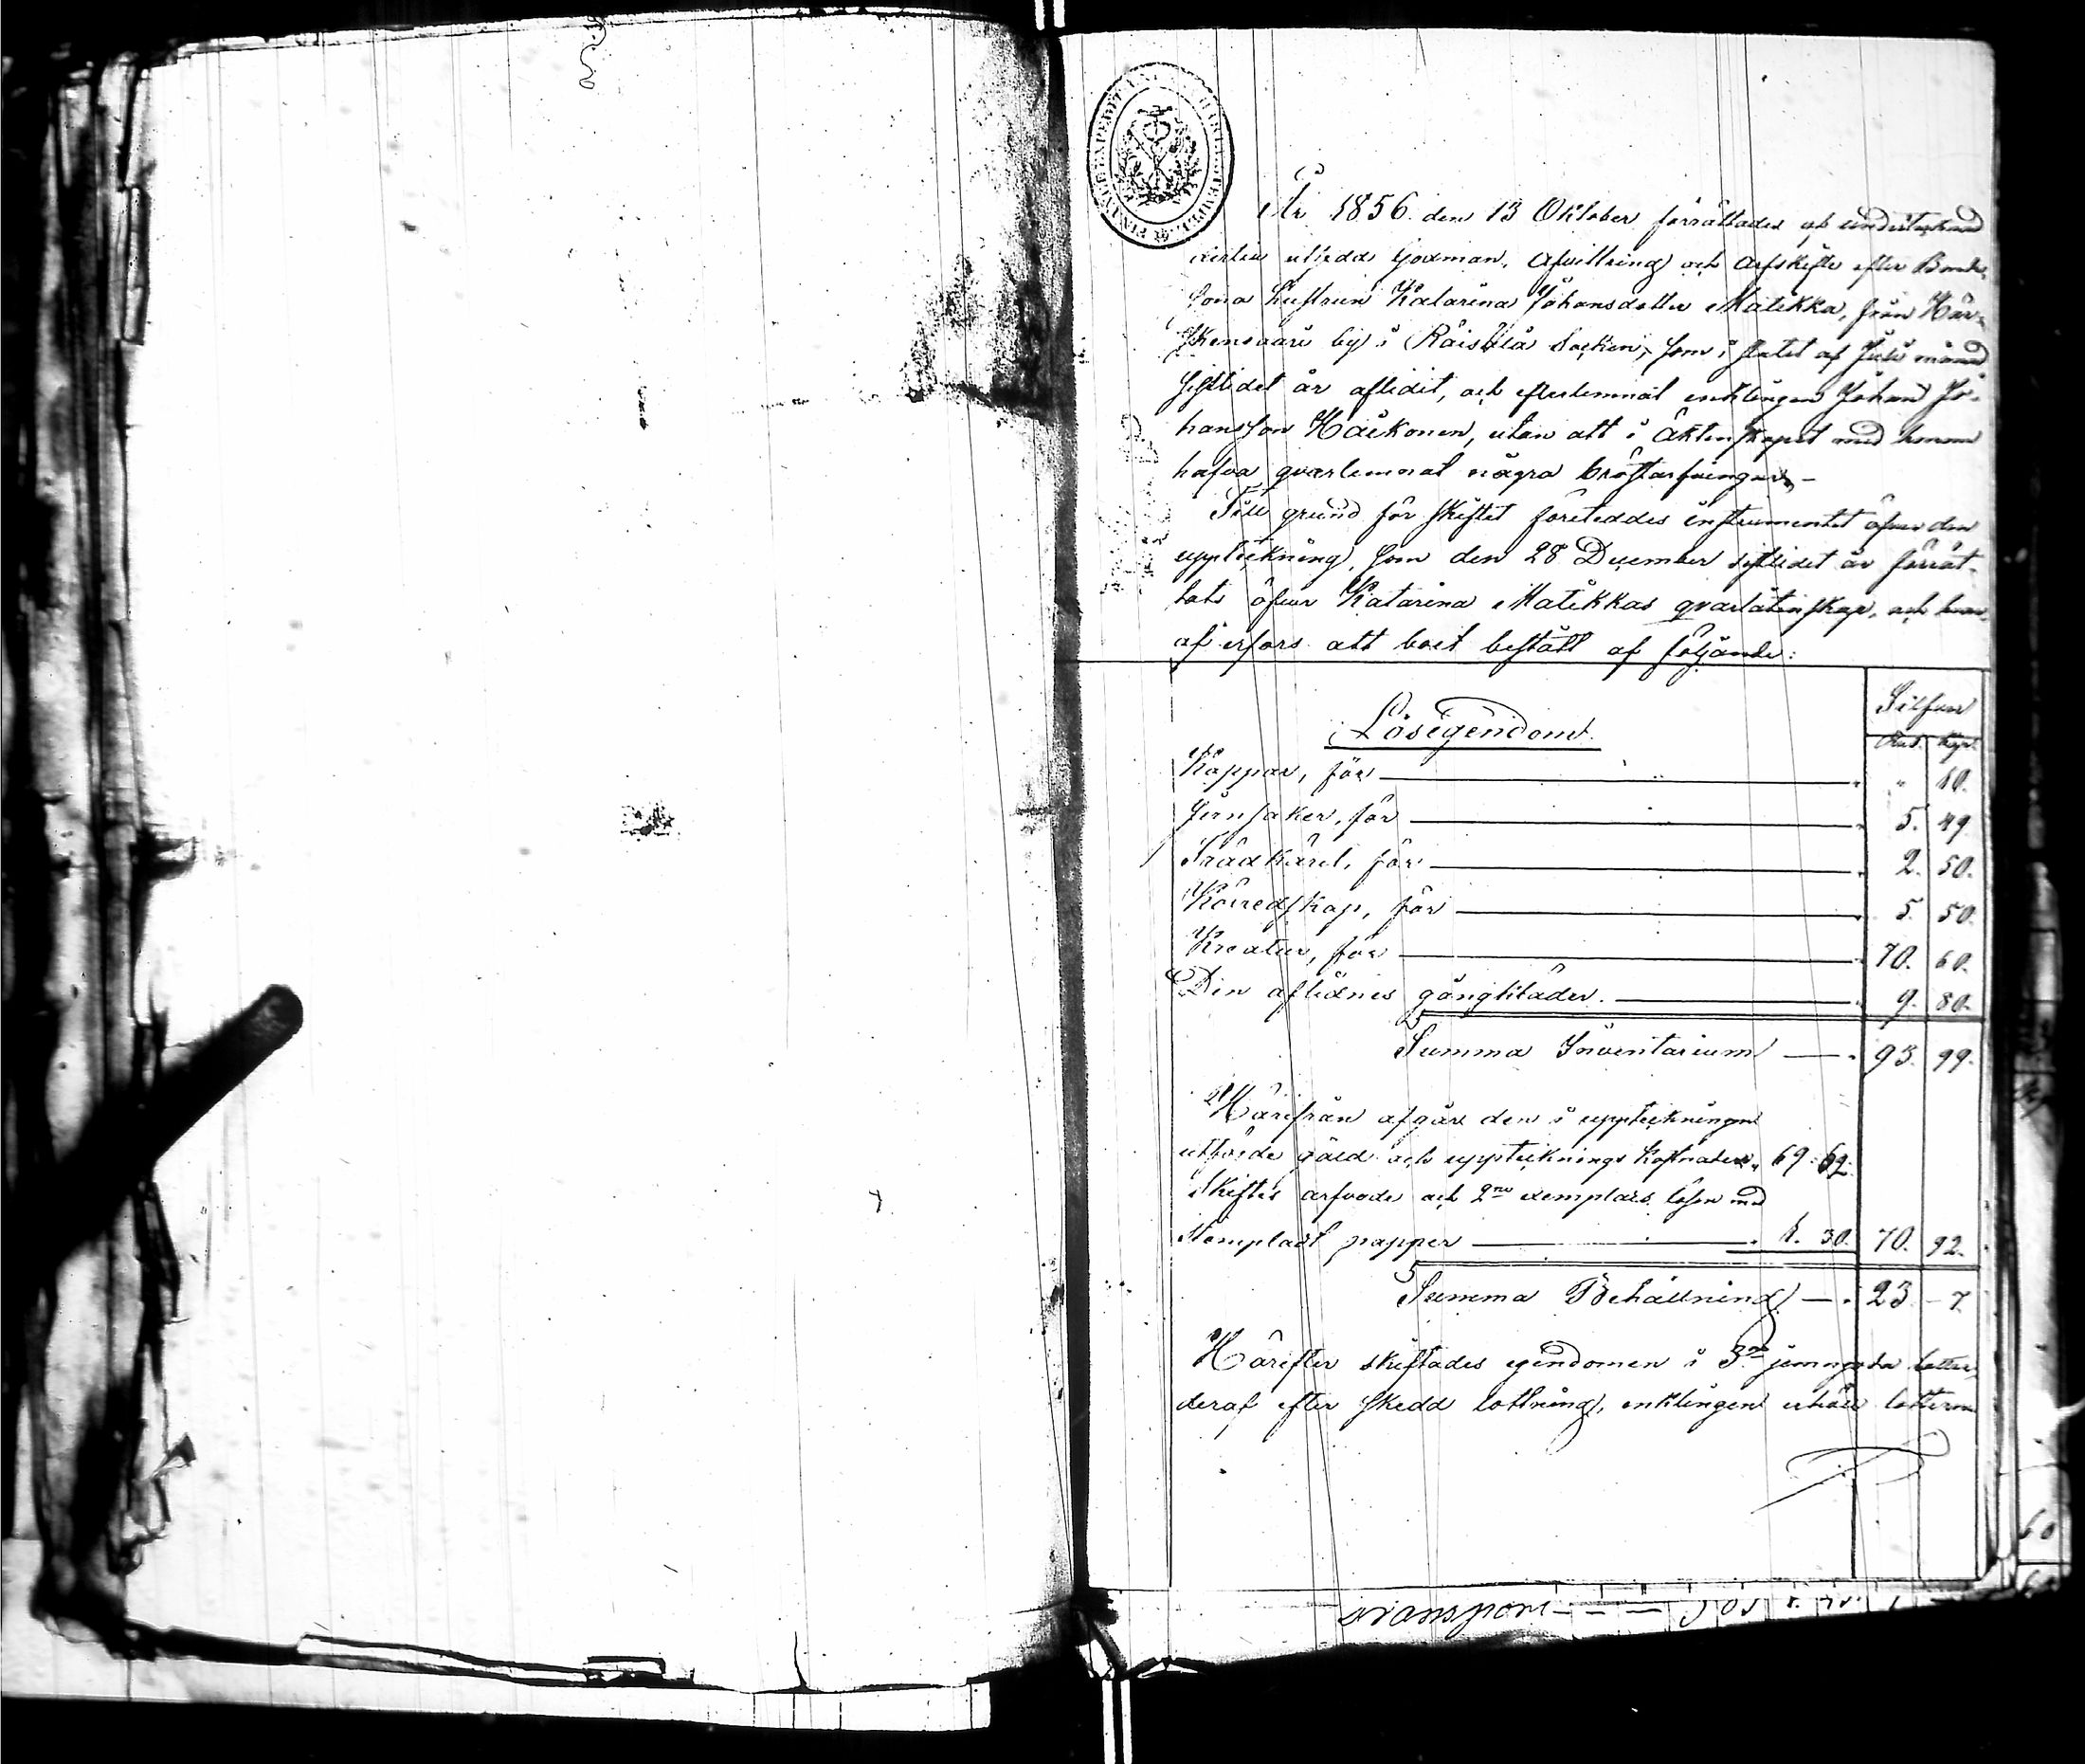 År 1856 den 13 Oktober förrättades af undertecknad
dertill utsedd Godman, afvittring och arfskifte efter Bonde,
sona hustrun Katarina Johansdotter Matikka, från Här=
skensaari by i Räisälä Socken, som i slutet af Juli månad
sistlidet år aflidit, och efterlemnat enklingen Johan Jo=
hansson Häikonen, utan att i äktenskapet med honom
hafva qvarlemnat några bröstarfvingar,-
Till grund för skiftet företeddes instrumentet öfver den
uppteckning, som den 28 December sistlidet år förrät-
tats öfver Katarina Matikkas qvarlåtenskap, och hvar,
af erfors att boet bestått af följande:
Silfver
Lösegendom.
Rub. Kop.
Koppar, för " 10.
Jernsaker, för 5. 49
Trädkäril, för 2. 50.
Köreedskap, för 5. 50.
Kreatur, för 70. 60.
Den aflidnes gångkläder. 9. 80.
Summa Inventarium 93. 99.
Härifrån afgår den i uppteckningen
utförde gäld och uppteknings kostnader, 69: 62:
Skiftes arfvode och 2ne exemplars lösen med
stempladt papper 1. 30. 70. 92.
Summa Behållning 23 - 7
Härefter skiftades egendomen i 3ne jemngoda lotter,
deraf efter skedd lottning, enklingen erhöll lotterne
Transport